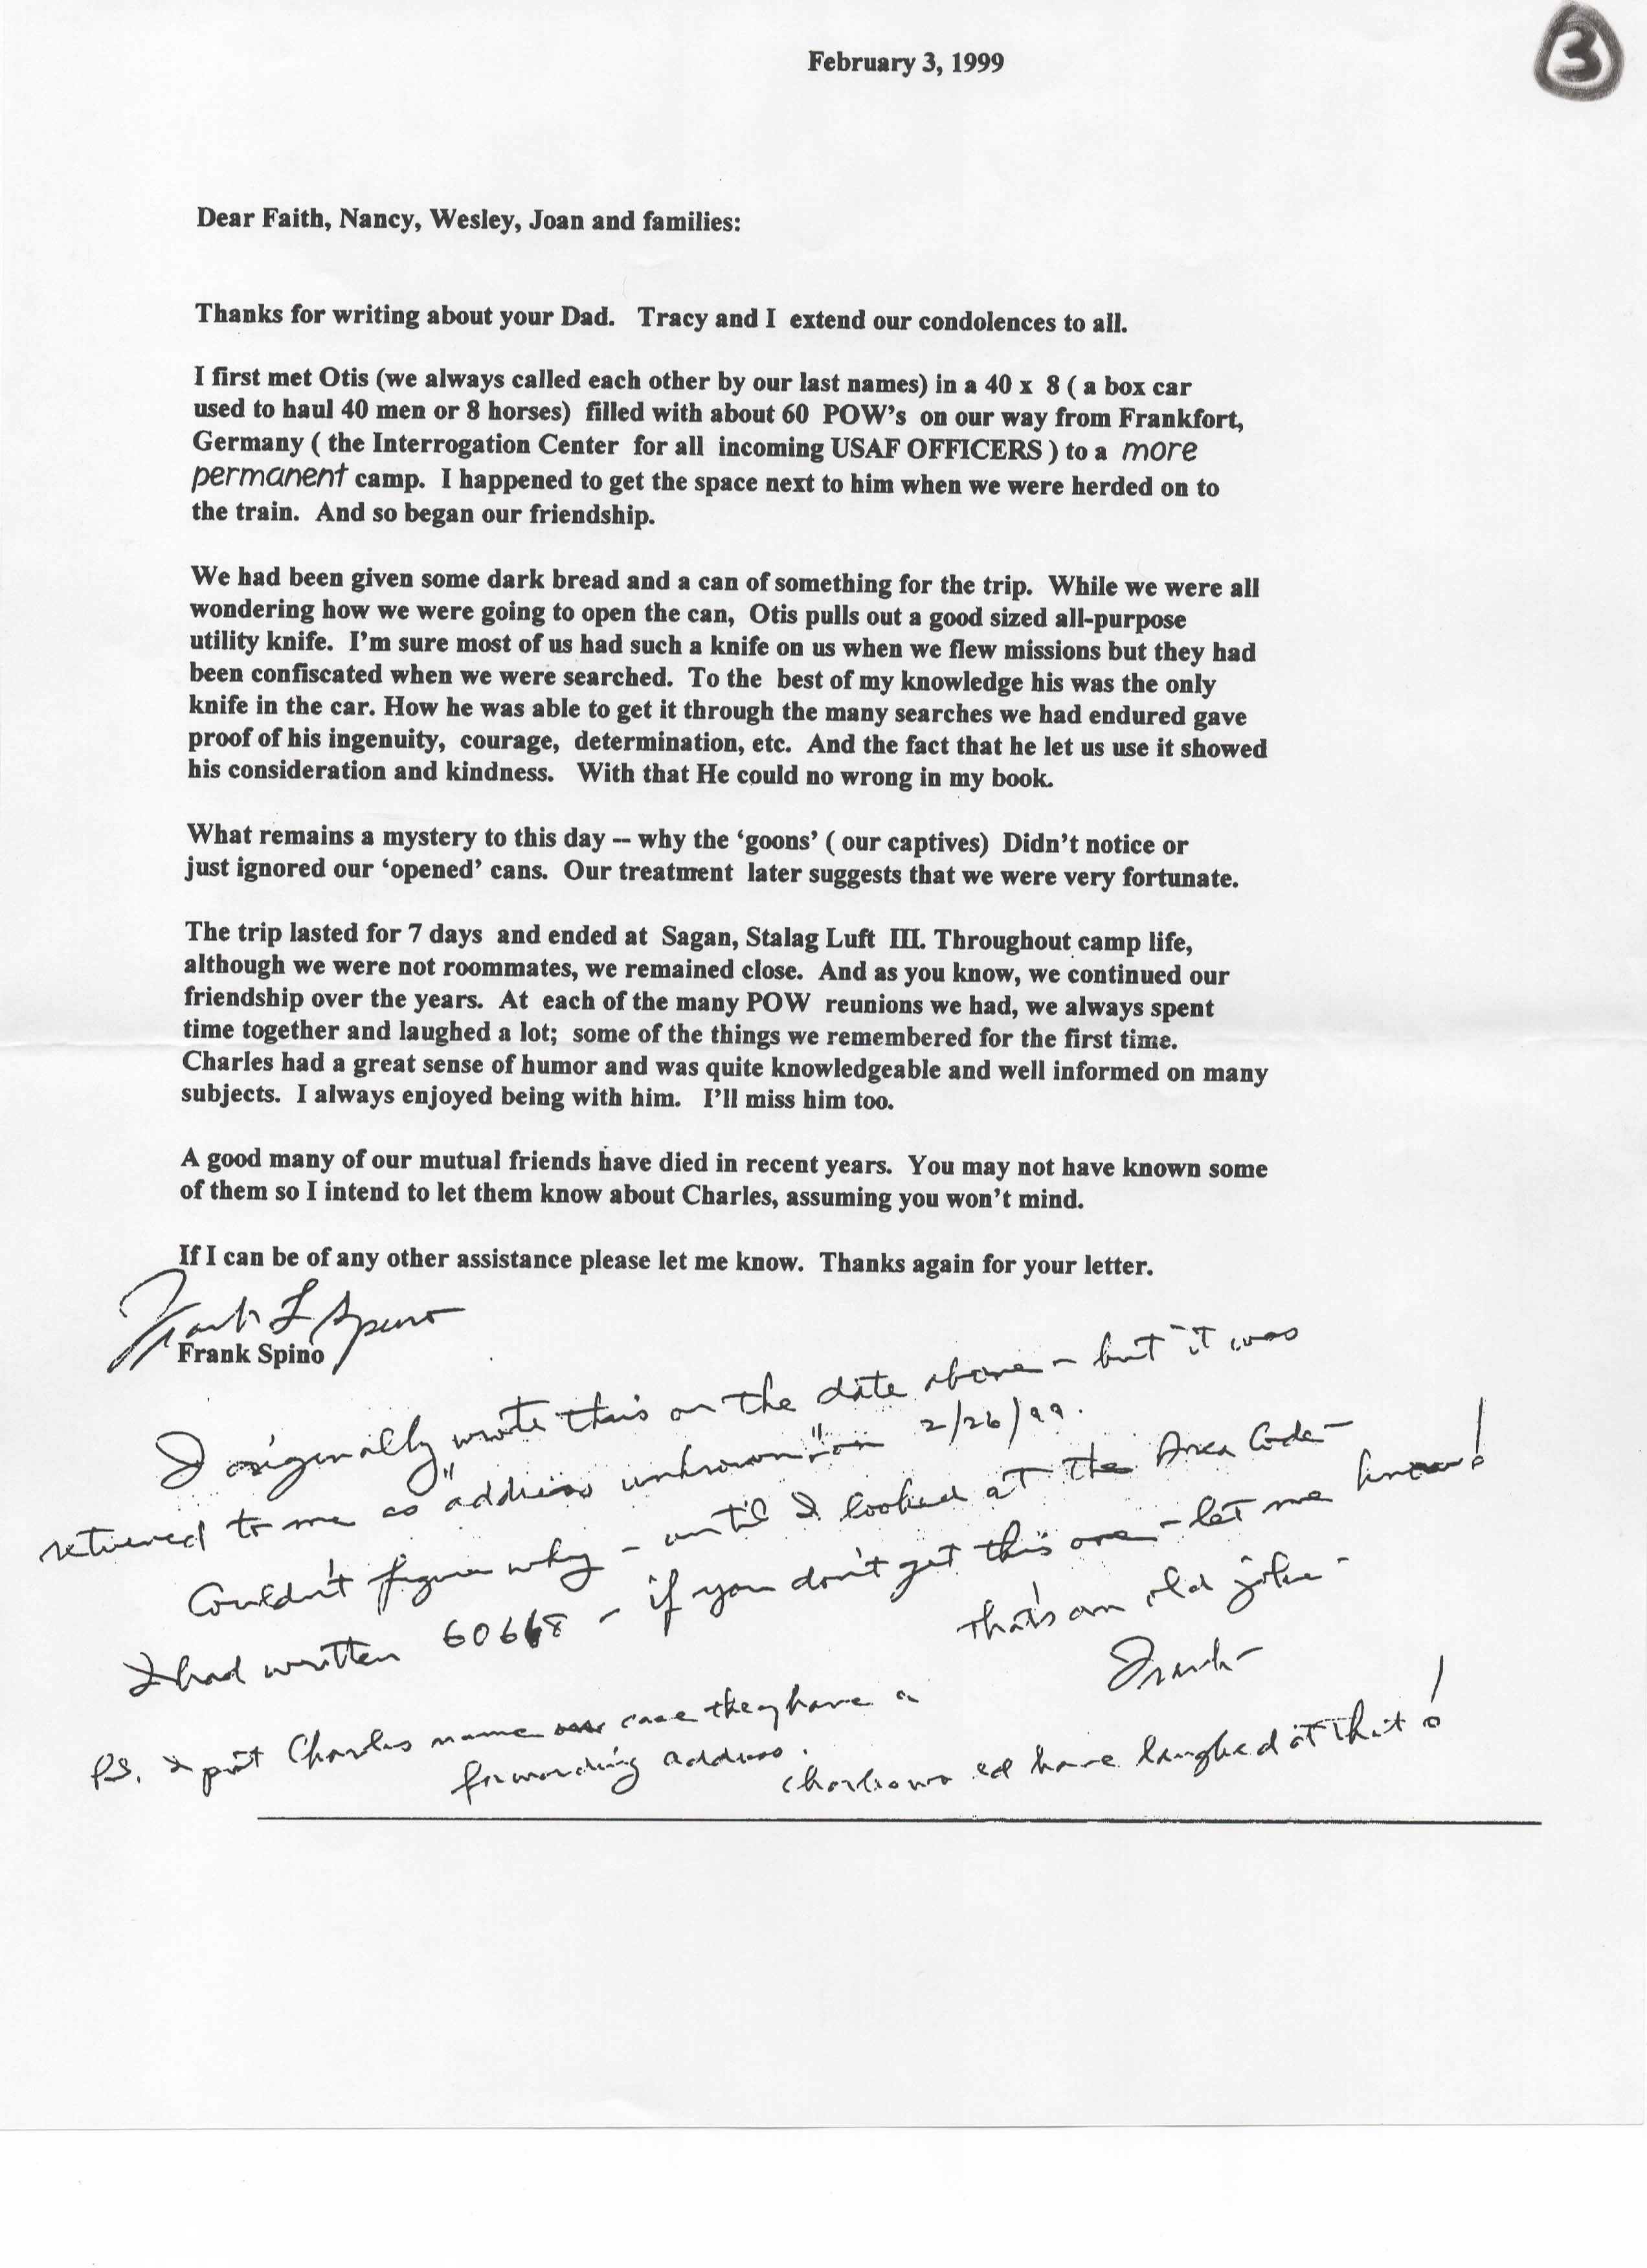 February 3, 1999
3
Dear Faith, Nancy, Wesley, Joan and families:
Thanks for writing about your Dad. Tracy and I extend our condolences to all.
I first met Otis (we always called each other by our last names) in a 40 x 8 ( a box car
used to haul 40 men or 8 horses) filled with about 60 POW's on our way from Frankfort,
Germany ( the Interrogation Center for all incoming USAF OFFICERS ) to a more
permanent camp. I happened to get the space next to him when we were herded on to
the train. And so began our friendship.
We had been given some dark bread and a can of something for the trip. While we were all
wondering how we were going to open the can, Otis pulls out a good sized all-purpose
utility knife. I'm sure most of us had such a knife on us when we flew missions but they had
been confiscated when we were searched. To the best of my knowledge his was the only
knife in the car. How he was able to get it through the many searches we had endured gave
proof of his ingenuity, courage, determination, etc. And the fact that he let us use it showed
his consideration and kindness. With that He could no wrong in my book.
What remains a mystery to this day -- why the 'goons' ( our captives) Didn't notice or
just ignored our 'opened' cans. Our treatment later suggests that we were very fortunate.
The trip lasted for 7 days and ended at Sagan, Stalag Luft III. Throughout camp life,
although we were not roommates, we remained close. And as you know, we continued our
friendship over the years. At each of the many POW reunions we had, we always spent
time together and laughed a lot; some of the things we remembered for the first time.
Charles had a great sense of humor and was quite knowledgeable and well informed on many
subjects. I always enjoyed being with him. I'll miss him too.
A good many of our mutual friends have died in recent years. You may not have known some
of them so I intend to let them know about Charles, assuming you won't mind.
If I can be of any other assistance please let me know. Thanks again for your letter.
Frank L Spino
Frank Spino
I originally wrote this on the date above - but it was
returned to me as "address unknown" on 2/26/99.
Couldn't figure why - until I looked at the Area Code -
I had written 60668 - if you don't get this one - let me know!
that's an old joke -
Frank -
P.S. I put Charles name case they have a
forwarding address.
Charles would have laughed at that!